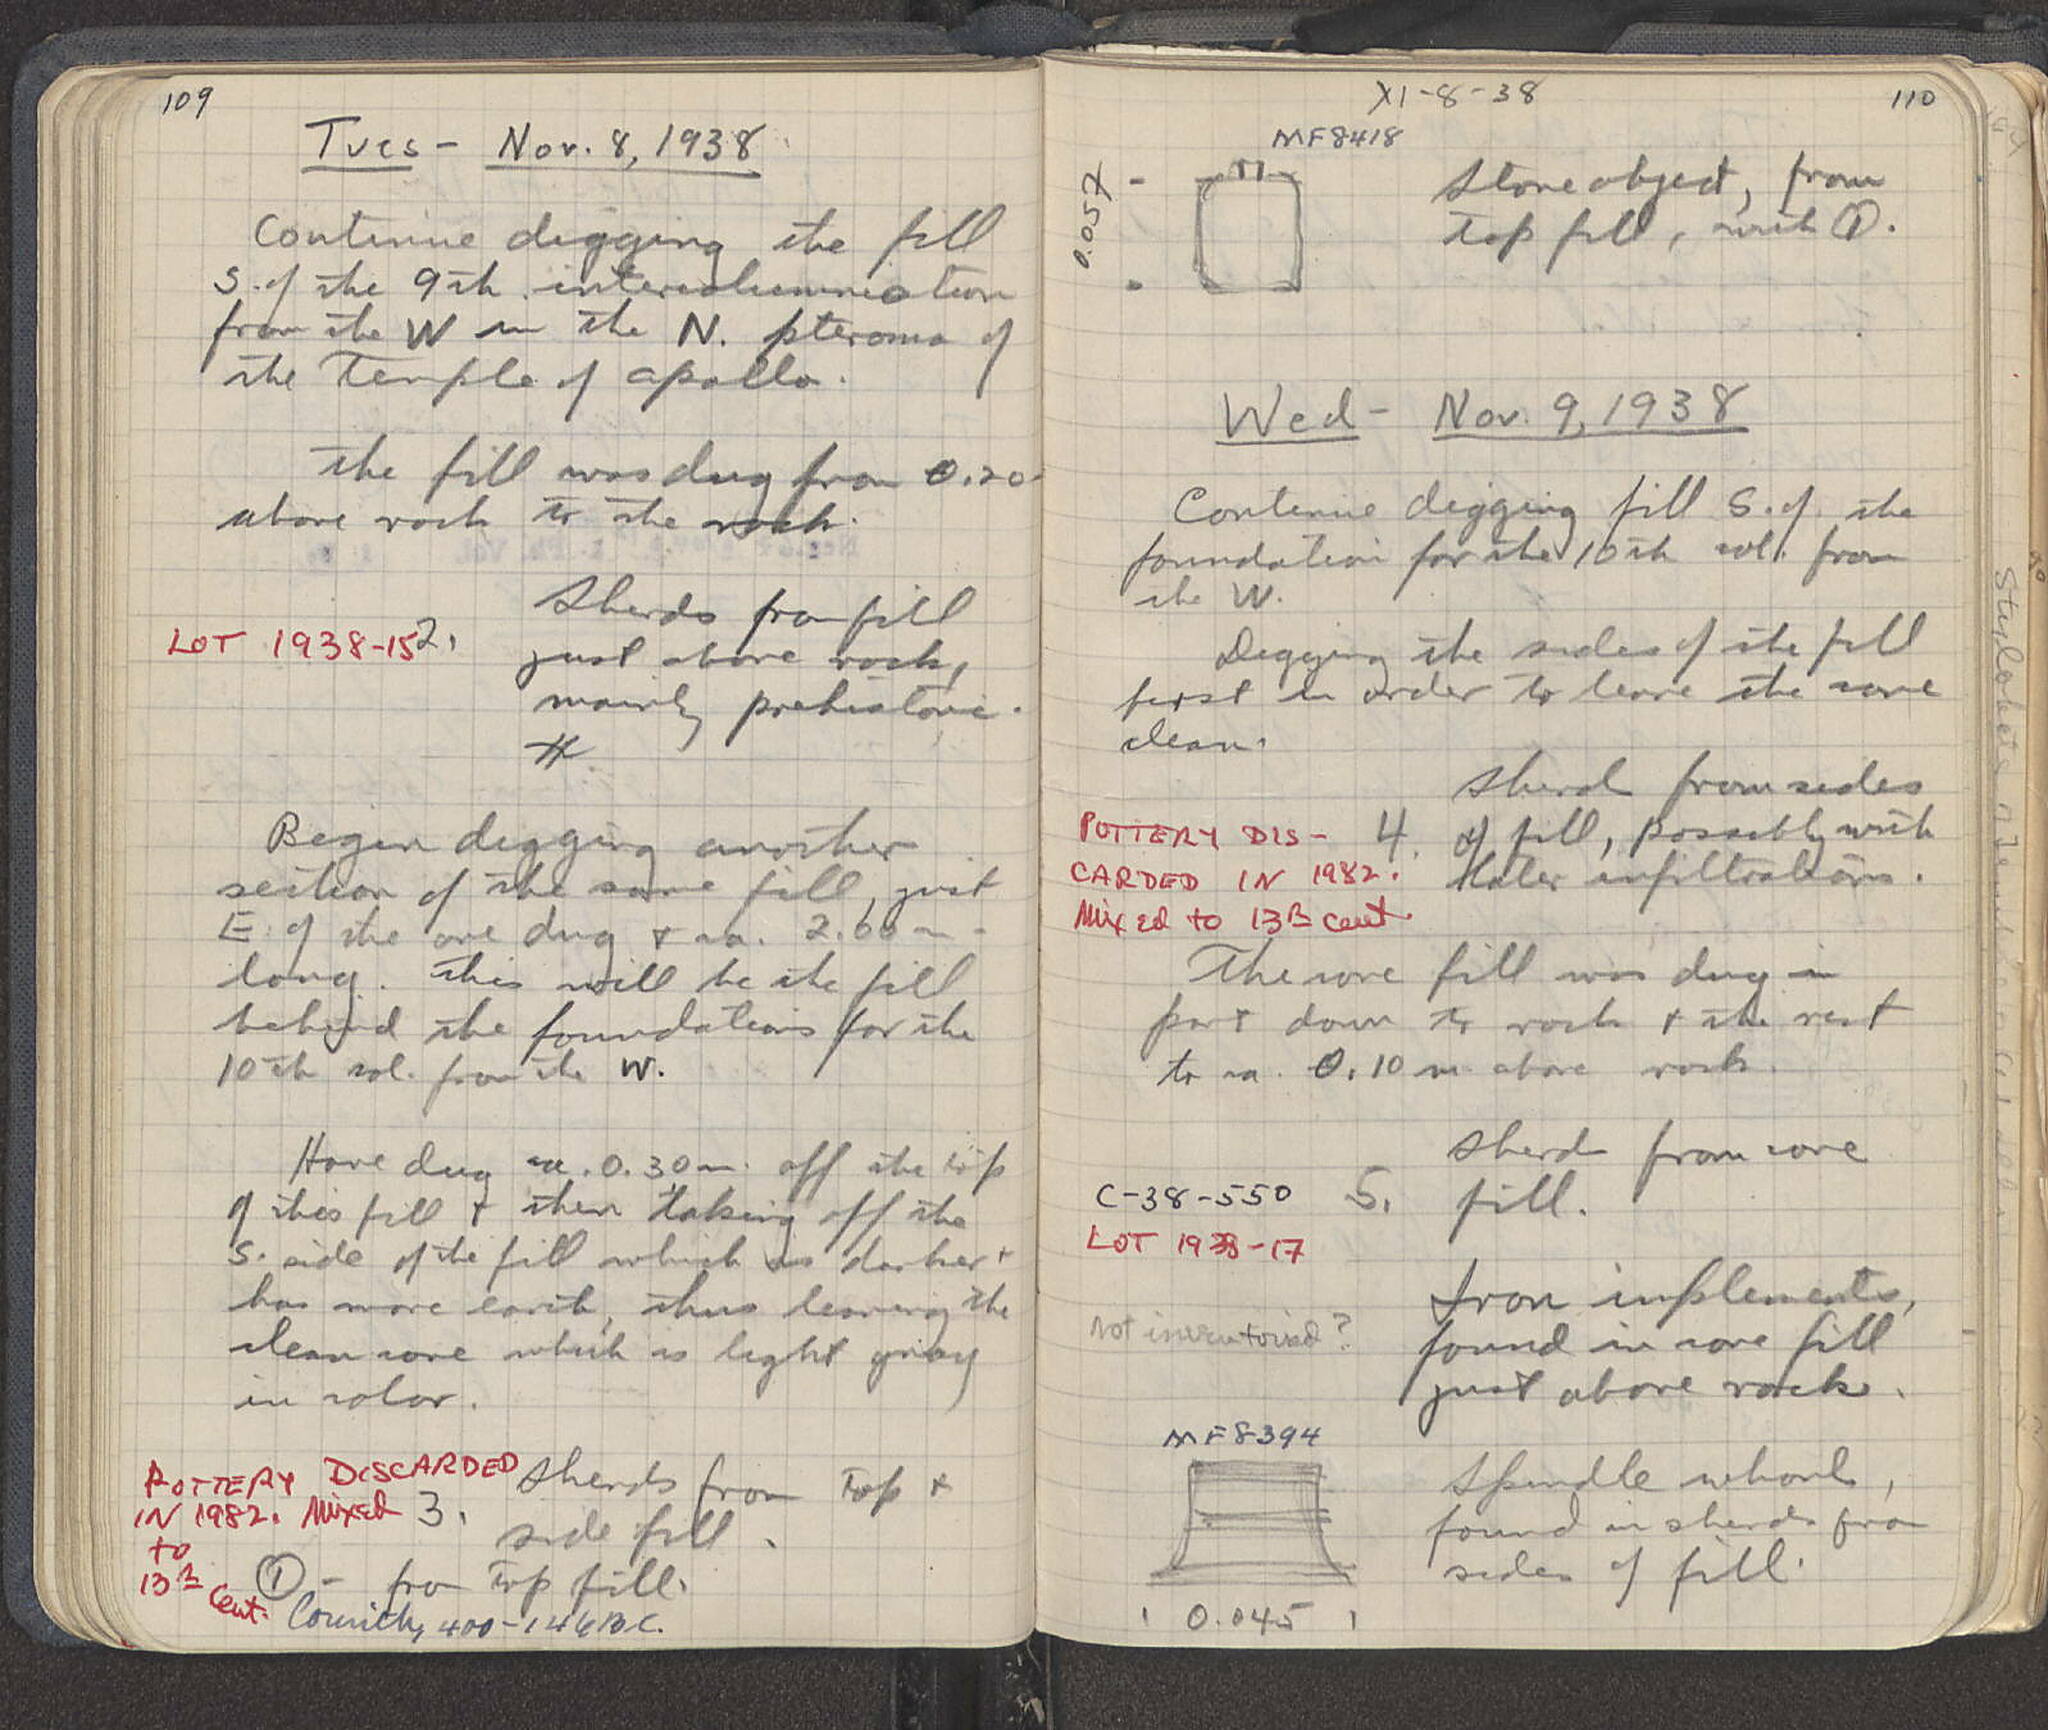 109
Tues - Nov. 8, 1938
Continue digging the fill
S. of the 9th intercolumniation
from the W in the N. pteroma of
the Temple of Apollo.
The fill was dug from 0.20
above rock to the rock.
Sherds from fill
LOT 1938-15 2. just above rock,
mainly prehistoric.
Begin digging another
section of the same fill, just
E. of the one dug + ca. 2.60 m
long. This will be the fill
behind the foundations for the
10th col. from the W.
Have dug ca. 0.30 m. off the top
of this fill + then taking off the
S. side of the fill which is darker +
has more earth, thus leaving the
clean core which is light gray
in color.
POTTERY DISCARDED Sherds from top +
IN 1982. Mixed 3. side fill.
to
13th Cent. ① - from top fill.
Corinth, 400-146 B.C.
XI-8-38 110
MF8418
0.057
Stone object, from
top fill, with ①.
Wed - Nov. 9, 1938
Continue digging fill S. of the
foundation for the 10th col. from
the W.
Digging the sides of the fill
first in order to leave the core
clean.
Sherd from sides
POTTERY DIS- 4. of fill, possibly with
CARDED IN 1982. later infiltrations.
Mixed to 13th cent.
The core fill was dug in
part down to rock + the rest
to ca. 0.10 m above rock.
Sherd from core
C-38-550 5. fill.
LOT 1938-17
Iron implements,
Not inventoried? found in core fill
just above rock.
MF8394
Spindle whorl,
found in sherds from
sides of fill.
0.045